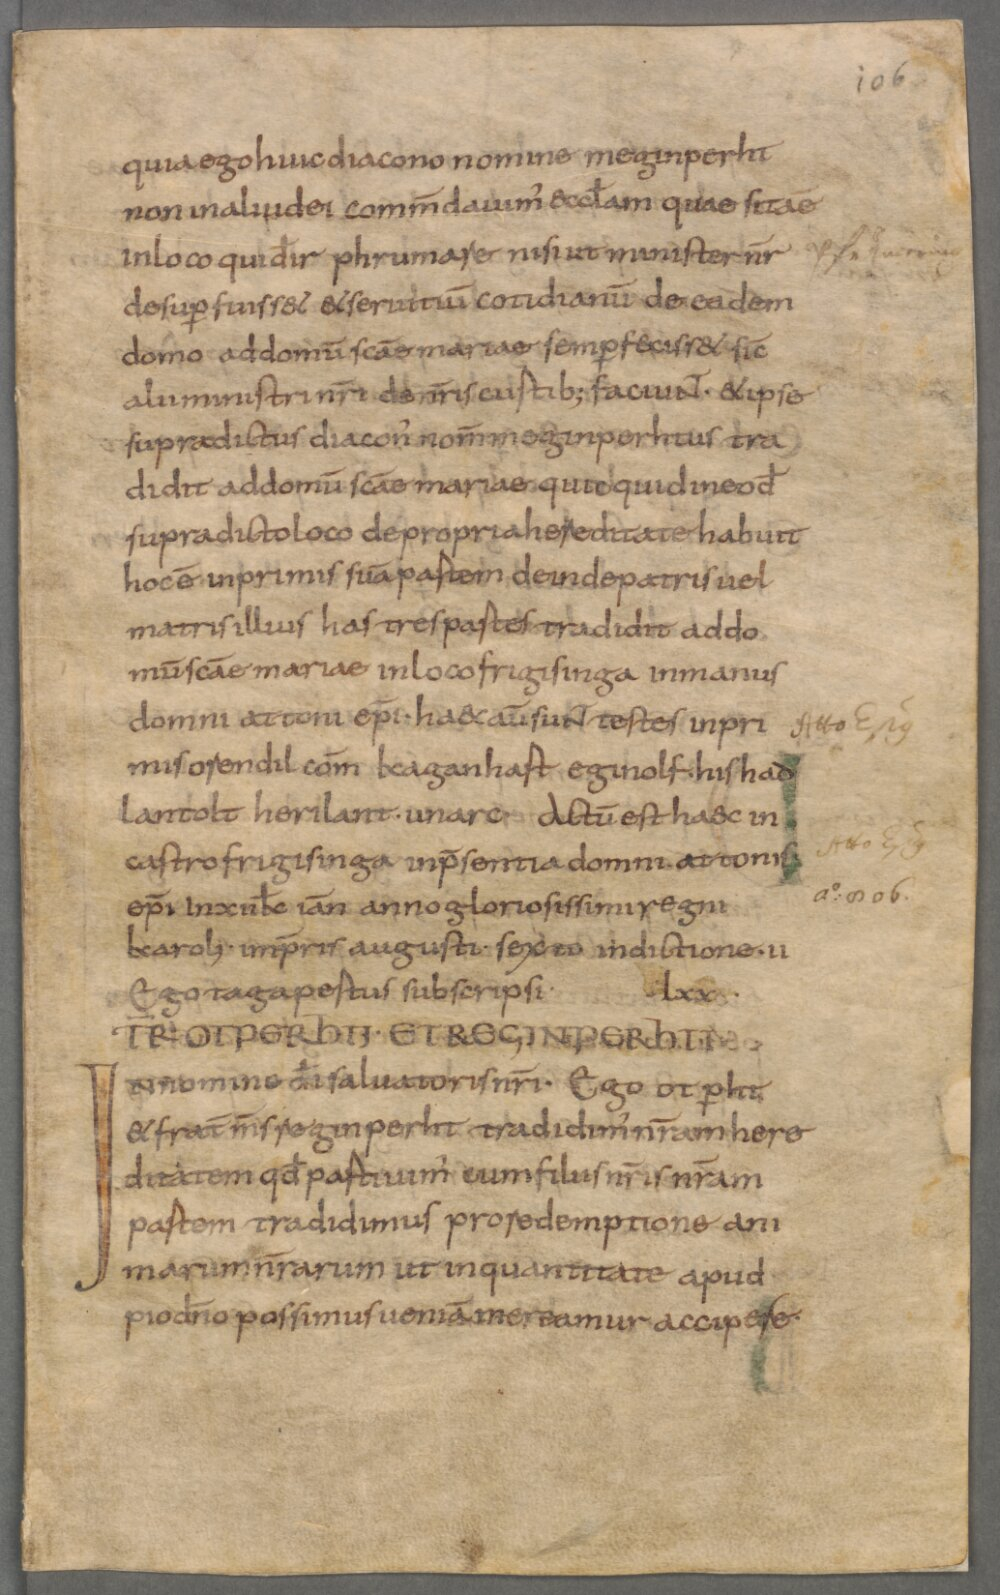 106
quia ego huic diacono nomine meginperht
non in aliud ei com̄daium᾽ ecc̄lam quae sitae
in loco qui dīr phrumare nisi ut minister nr̄
desup fuiss& & seruitiū cotidianū de eadem
domo ad domū scāe mariae semp feciss& sic̄
alii ministri nr̄i de nr̄is custib; faciunt. & ipse
supradictus diacon᾽ nom̄ meginperhtus tra
didit ad domū scāe mariae quicquid in eod̄
supradicto loco de propria hereditate habuit
hoc ē inprimis suā partem deinde patris uel
matris illius has tres partes tradidit ad do
mū scāe mariae in loco frigisinga in manus
domni attoni ep̄i. haec aū sunt testes inpri
mis orendil com̄ kaganhart eginolf. hishad
lantolt herilant. unarc actū est haec in
castro frigisinga in p̄sentia domni attonis
ep̄i in xii kł ian̄ anno gloriosissimi regni
karoli. imp̄ris augusti. sexto indictione. ii
Ego tagapertus subscripsi. lxx.
TR̄ OTPERHTI. ET REGINPERHTI
In nomine dī saluatoris nr̄i. Ego otpht
& frat̄ m̄s reginperht tradidim᾽ nr̄am here
ditatem qd̄ partiuim᾽ cum filiis nr̄is nr̄am
partem tradidimus pro redemptione ani
marum nr̄arum ut in quantitate apud
pio dn̄o possimus ueniā mereamur accipere.
Atto Ep̄g
Atto Ep̄g
aº: 806.